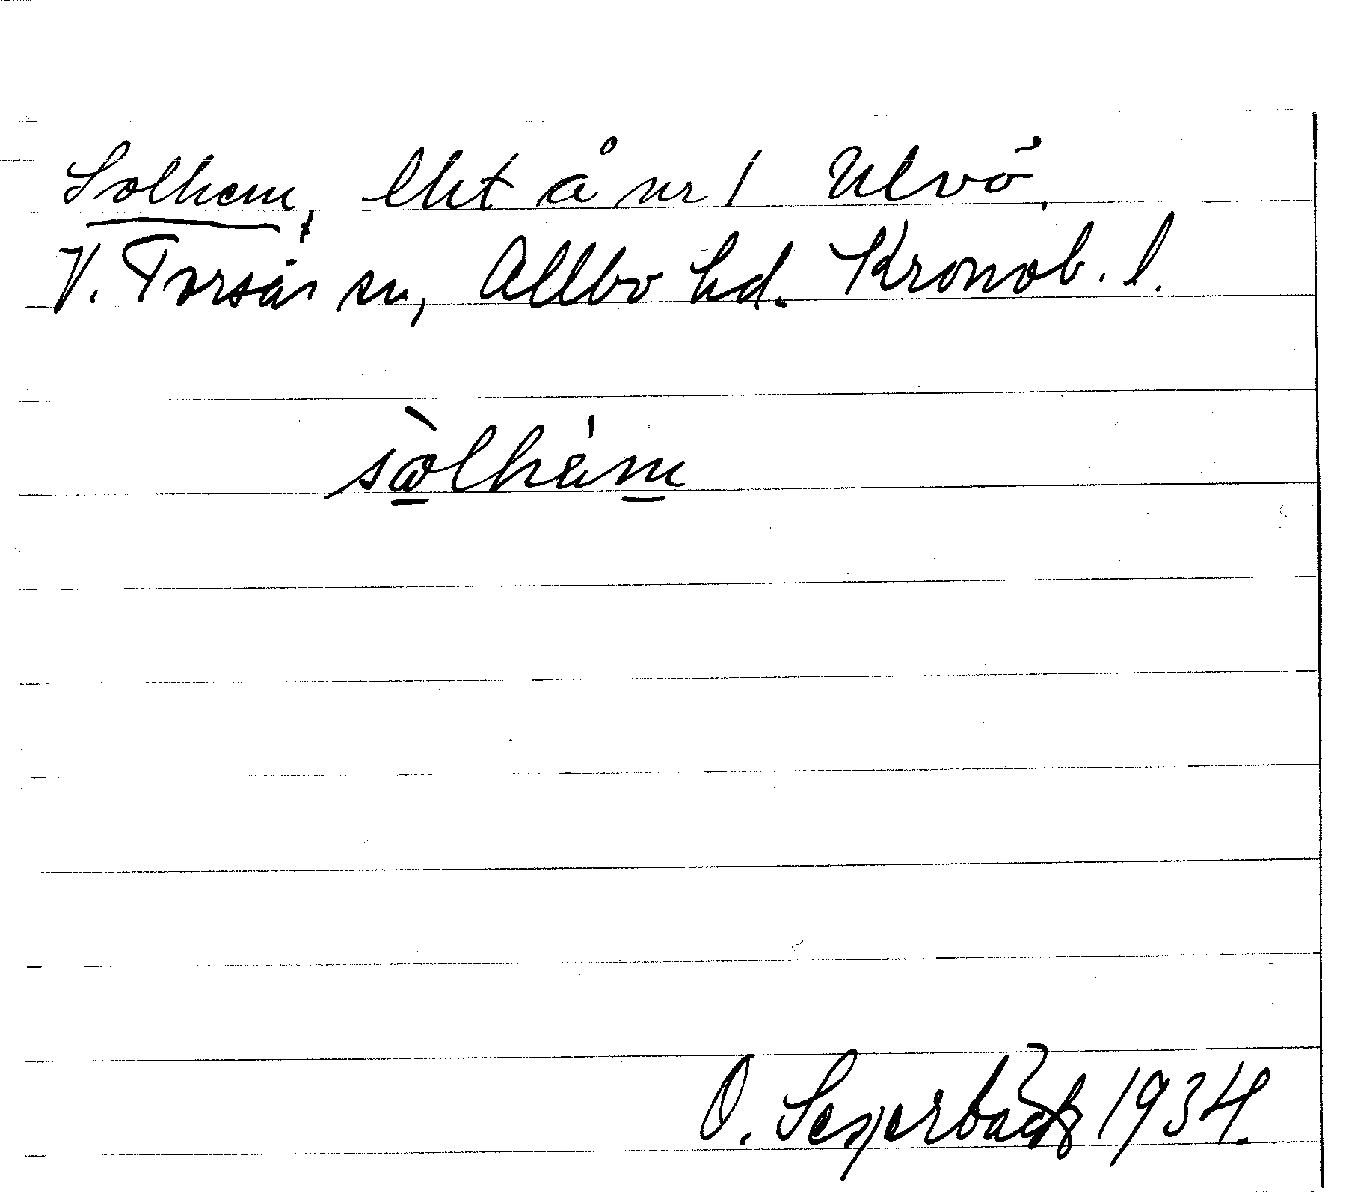 Solhem, lht å nr 1 Ulvö,
V. Torsås sn, Allbo hd. Kronob. l.
sòlhém
O. Seyerbäck 1934.